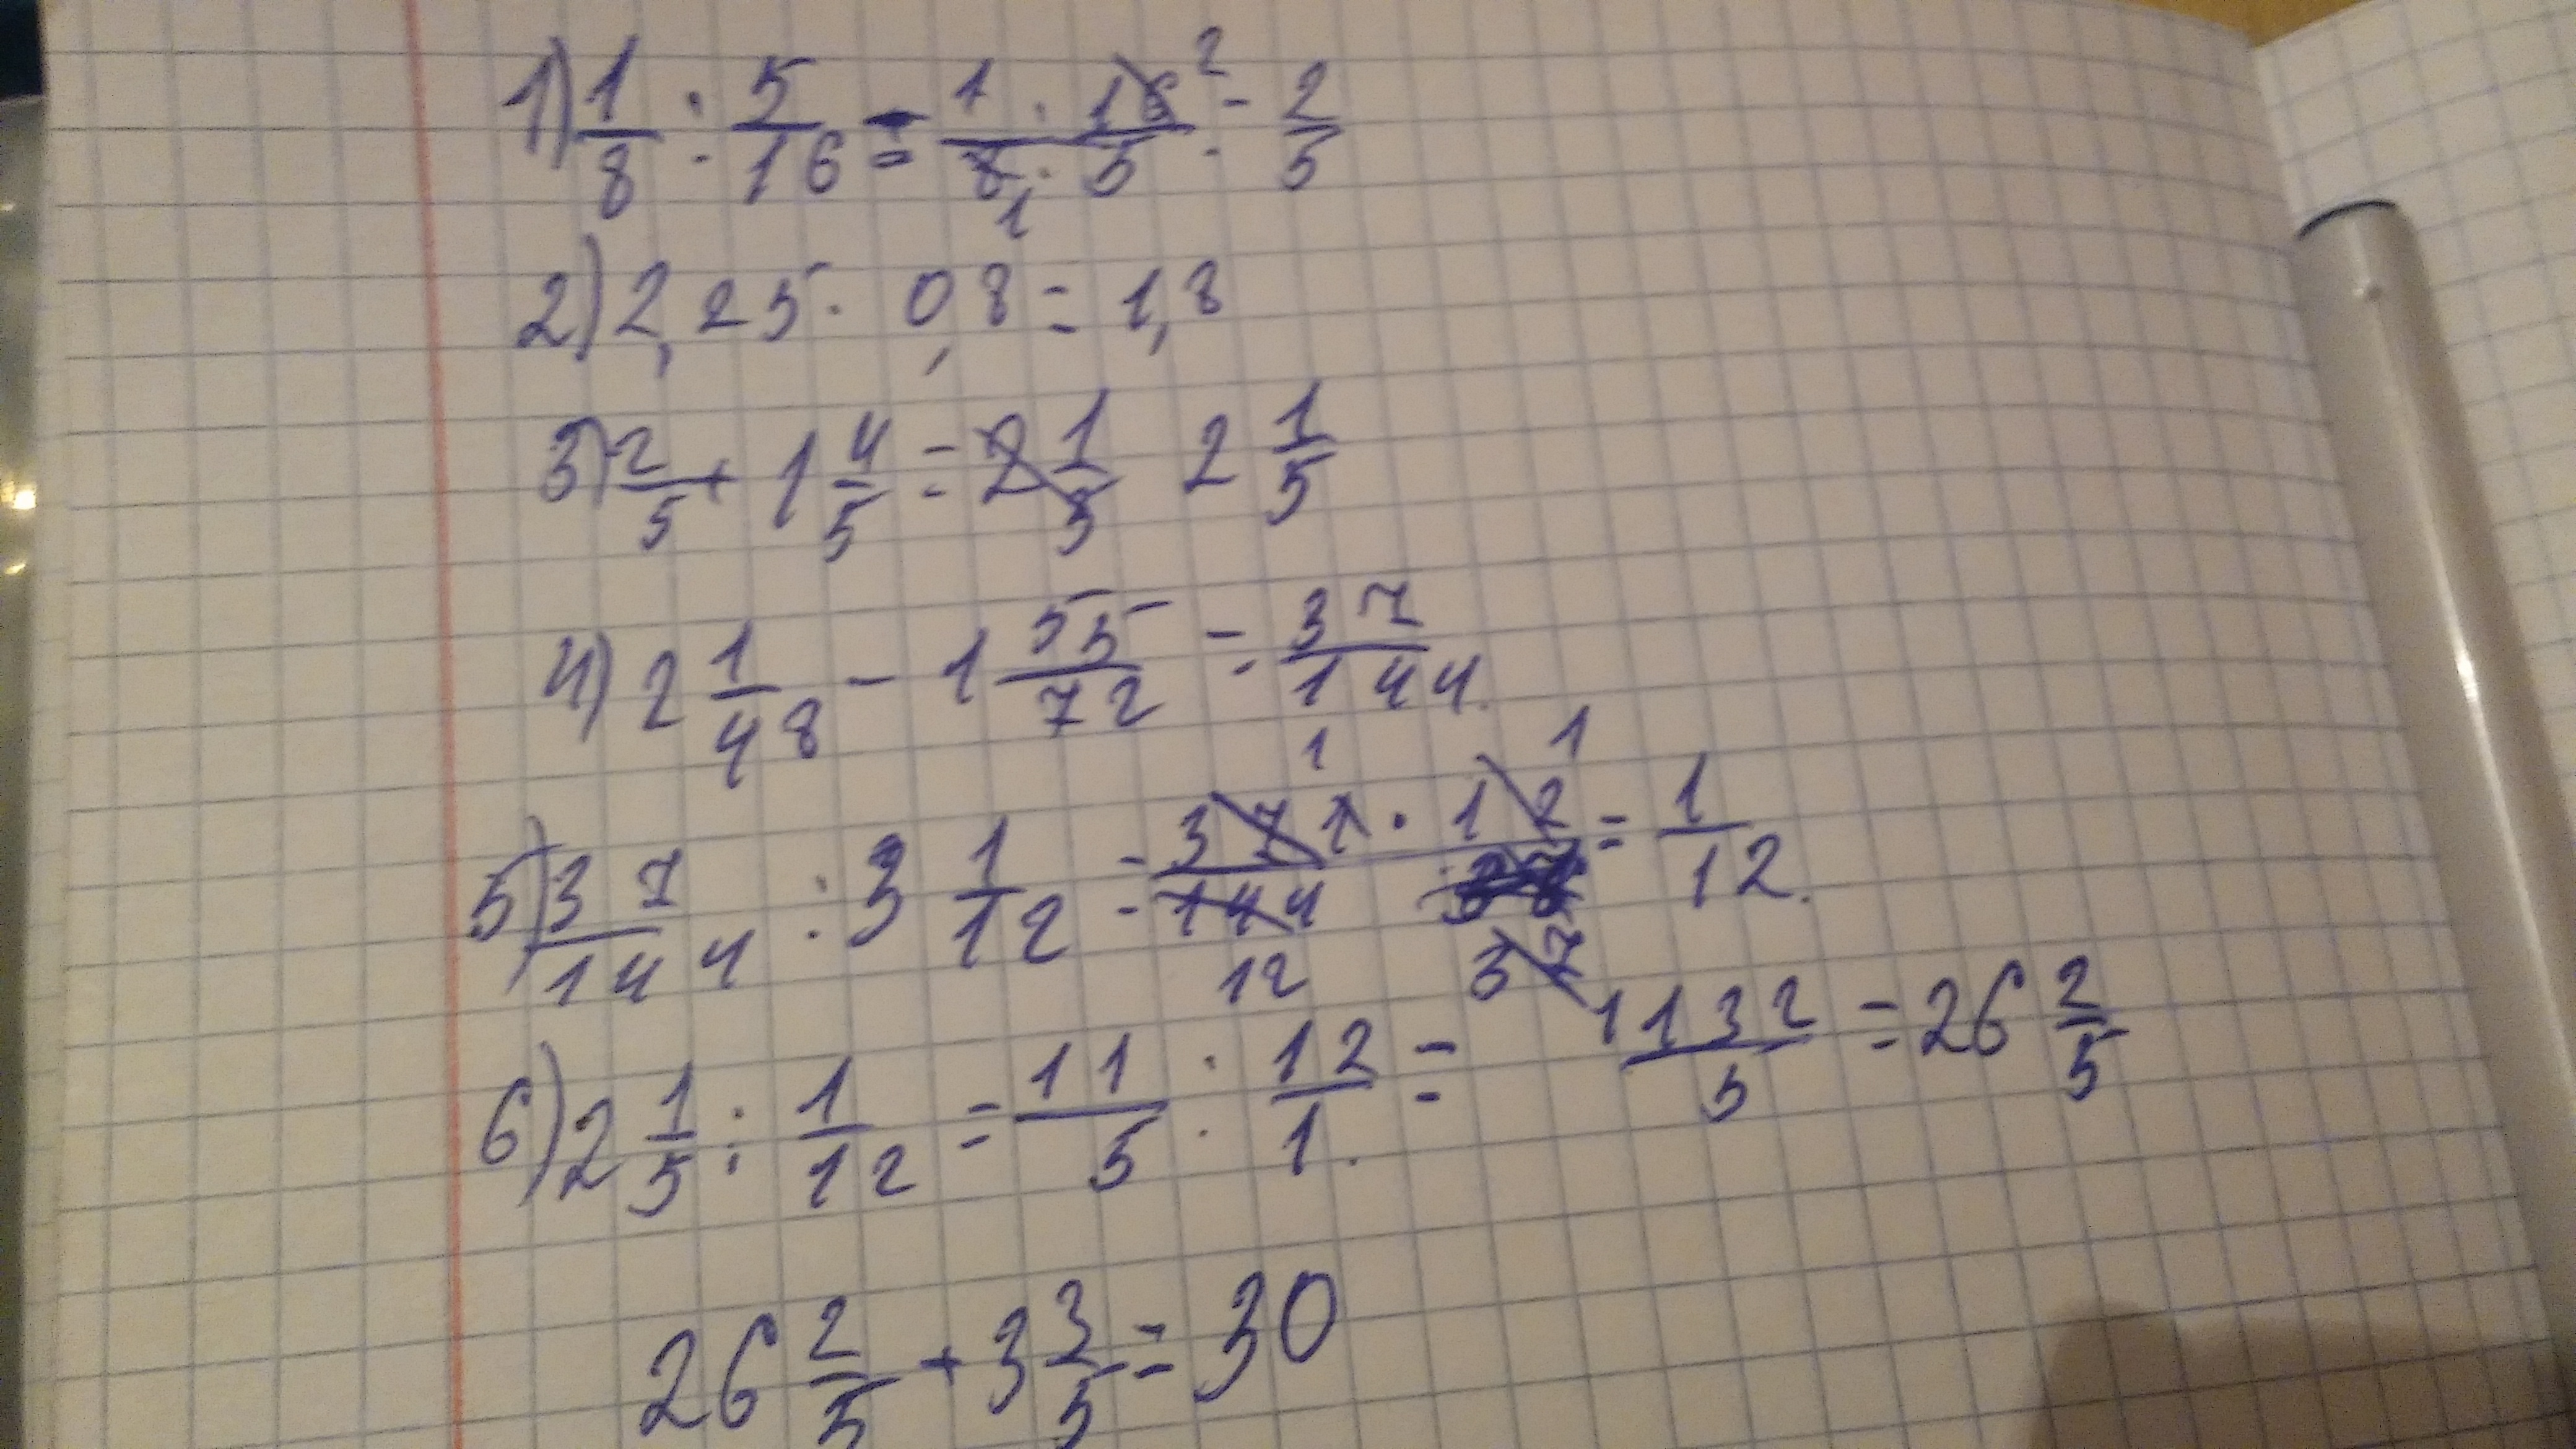 1) 1/8 : 5/16 = 1 · 16 2 / 8 1 · 5 = 2/5
2) 2,25 · 0,8 = 1,8
3) 2/5 + 1 4/5 = 2 1/5 2 1/5
4) 2 1/48 - 1 55/72 = 37/144
5) 37/144 : 3 1/12 = 37 1 · 12 1 / 144 12 37 1 = 1/12.
6) 2 1/5 : 1/12 = 11/5 · 12/1 = 132/5 = 26 2/5
26 2/5 + 3 3/5 = 30